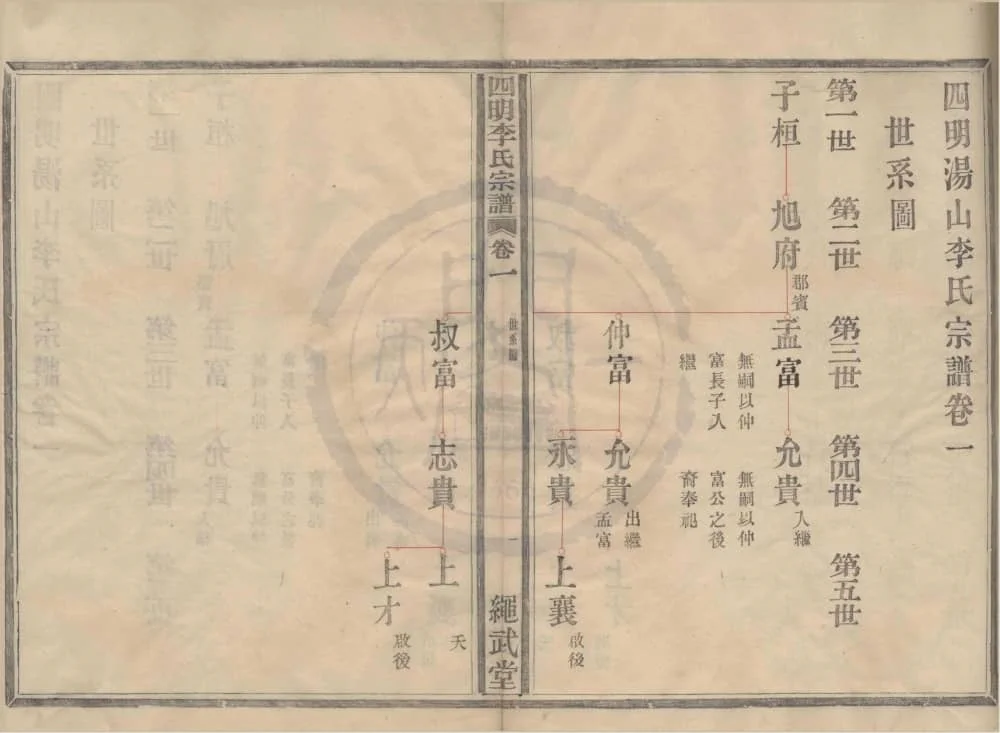 四明湯山李氏宗譜卷一
世系圖
第一世 第二世 第三世 第四世 第五世
子桓 旭府 郡賓 孟富 允貴 入繼
無嗣以仲 無嗣以仲
富長子入 富公之後
繼 裔奉祀
仲富 允貴 出繼
孟富
永貴 上襄 啟後
四明李氏宗譜 卷一 世系圖 一 繩武堂
叔富 志貴 上 夭
上才 啟後